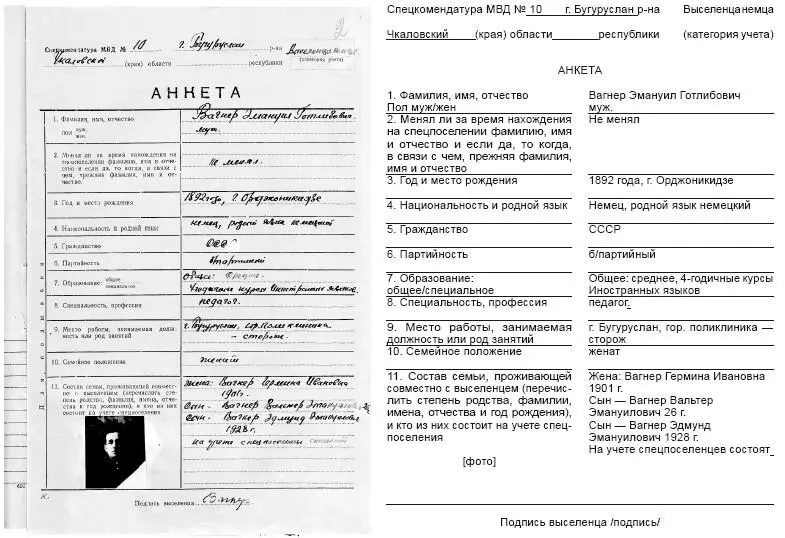 2
Спецкомендатура МВД № 10 г. Бугуруслан р-на Выселенцанемца
Чкаловской (края) области республики (категория учета)
АНКЕТА
1. Фамилия, имя, отчество Вагнер Эмануил Готлибович
пол муж. жен. муж.
2. Менял ли за время нахождения на
спецпоселении фамилию, имя и отче-
ство и если да, то когда, в связи с
чем, прежняя фамилия, имя и от-
чество.
не менял.
3. Год и место рождения 1892 года, г. Орджоникидзе
4. Национальность и родной язык немец, родной язык немецкий
5. Гражданство СССР
6. Партийность б/партийный
7. Образование: общее специальное Общее: средне.
4годичные курсы Иностранных языков.
8. Специальность, профессия педагог.
9. Место работы, занимаемая долж-
ность или род занятий
г. Бугуруслан, гор. поликлиника
— сторож.
10. Семейное положение женат
11. Состав семьи, проживающей совмест-
но с выселенцем (перечислить сте-
пень родства, фамилии, имена, отче-
ства и год рождения), и кто из них
состоит на учете спецпоселения
жена: Вагнер Гермина Ивановна
1901 г.
Сын - Вагнер Вальтер Эмануилович 26
Сын - Вагнер Эдмунд Эмануилович
1928 г.
на учете спецпоселенцев состоят
Подпись выселенца Вагнер
Для подшивки
Спецкомендатура МВД № 10 г. Бугуруслан р-на Выселенцанемца
Чкаловский (края) области республики (категория учета)
АНКЕТА
1. Фамилия, имя, отчество Вагнер Эмануил Готлибович
Пол муж/жен муж.
2. Менял ли за время нахождения Не менял
на спецпоселении фамилию, имя
и отчество и если да, то когда,
в связи с чем, прежняя фамилия,
имя и отчество
3. Год и место рождения 1892 года, г. Орджоникидзе
4. Национальность и родной язык Немец, родной язык немецкий
5. Гражданство СССР
6. Партийность б/партийный
7. Образование: Общее: среднее, 4-годичные курсы
общее/специальное Иностранных языков
8. Специальность, профессия педагог.
9. Место работы, занимаемая г. Бугуруслан, гор. поликлиника —
должность или род занятий сторож
10. Семейное положение женат
11. Состав семьи, проживающей Жена: Вагнер Гермина Ивановна
совместно с выселенцем (перечис- 1901 г.
лить степень родства, фамилии, Сын — Вагнер Вальтер
имена, отчества и год рождения), Эмануилович 26 г.
и кто из них состоит на учете спец- Сын — Вагнер Эдмунд
поселения Эмануилович 1928 г.
На учете спецпоселенцев состоят
[фото]
Подпись выселенца /подпись/